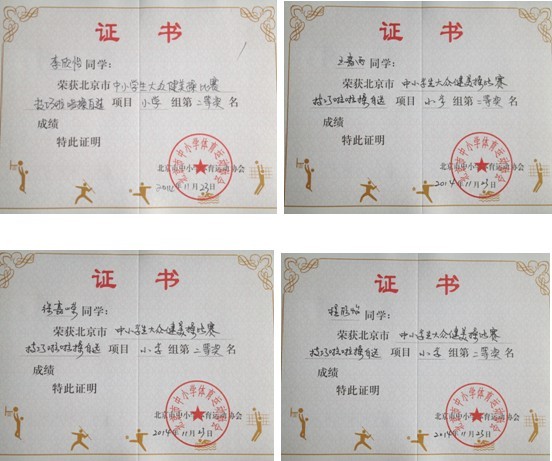 证 书
李欣怡 同学：
荣获北京市 中小学生大众健美操比赛
技巧啦啦操自选 项目 小学 组第 二等奖 名
成绩
特此证明
北京市中小学体育运动协会
2014年11月23日
证 书
王嘉西 同学：
荣获北京市 中小学生大众健美操比赛
技巧啦啦操自选 项目 小学 组第 二等奖 名
成绩
特此证明
北京市中小学体育运动协会
2014年11月23日
证 书
同学：
荣获北京市 中小学生大众健美操比赛
技巧啦啦操自选 项目 小学 组第 二等奖 名
成绩
特此证明
北京市中小学体育运动协会
2014年11月23日
证 书
同学：
荣获北京市 中小学生大众健美操比赛
技巧啦啦操自选 项目 小学 组第 二等奖 名
成绩
特此证明
北京市中小学体育运动协会
2014年11月23日